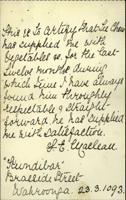 This is to certify that Lee Chew
has supplied me with
vegetables &c for the last
twelve months during
which time I have always
found him thoroughly
respectable & straight-
forward he has supplied
me with satisfaction.
S. E. Maclean
"Bundibar"
Braeside Street
Wahroonga. 23.3.1093.